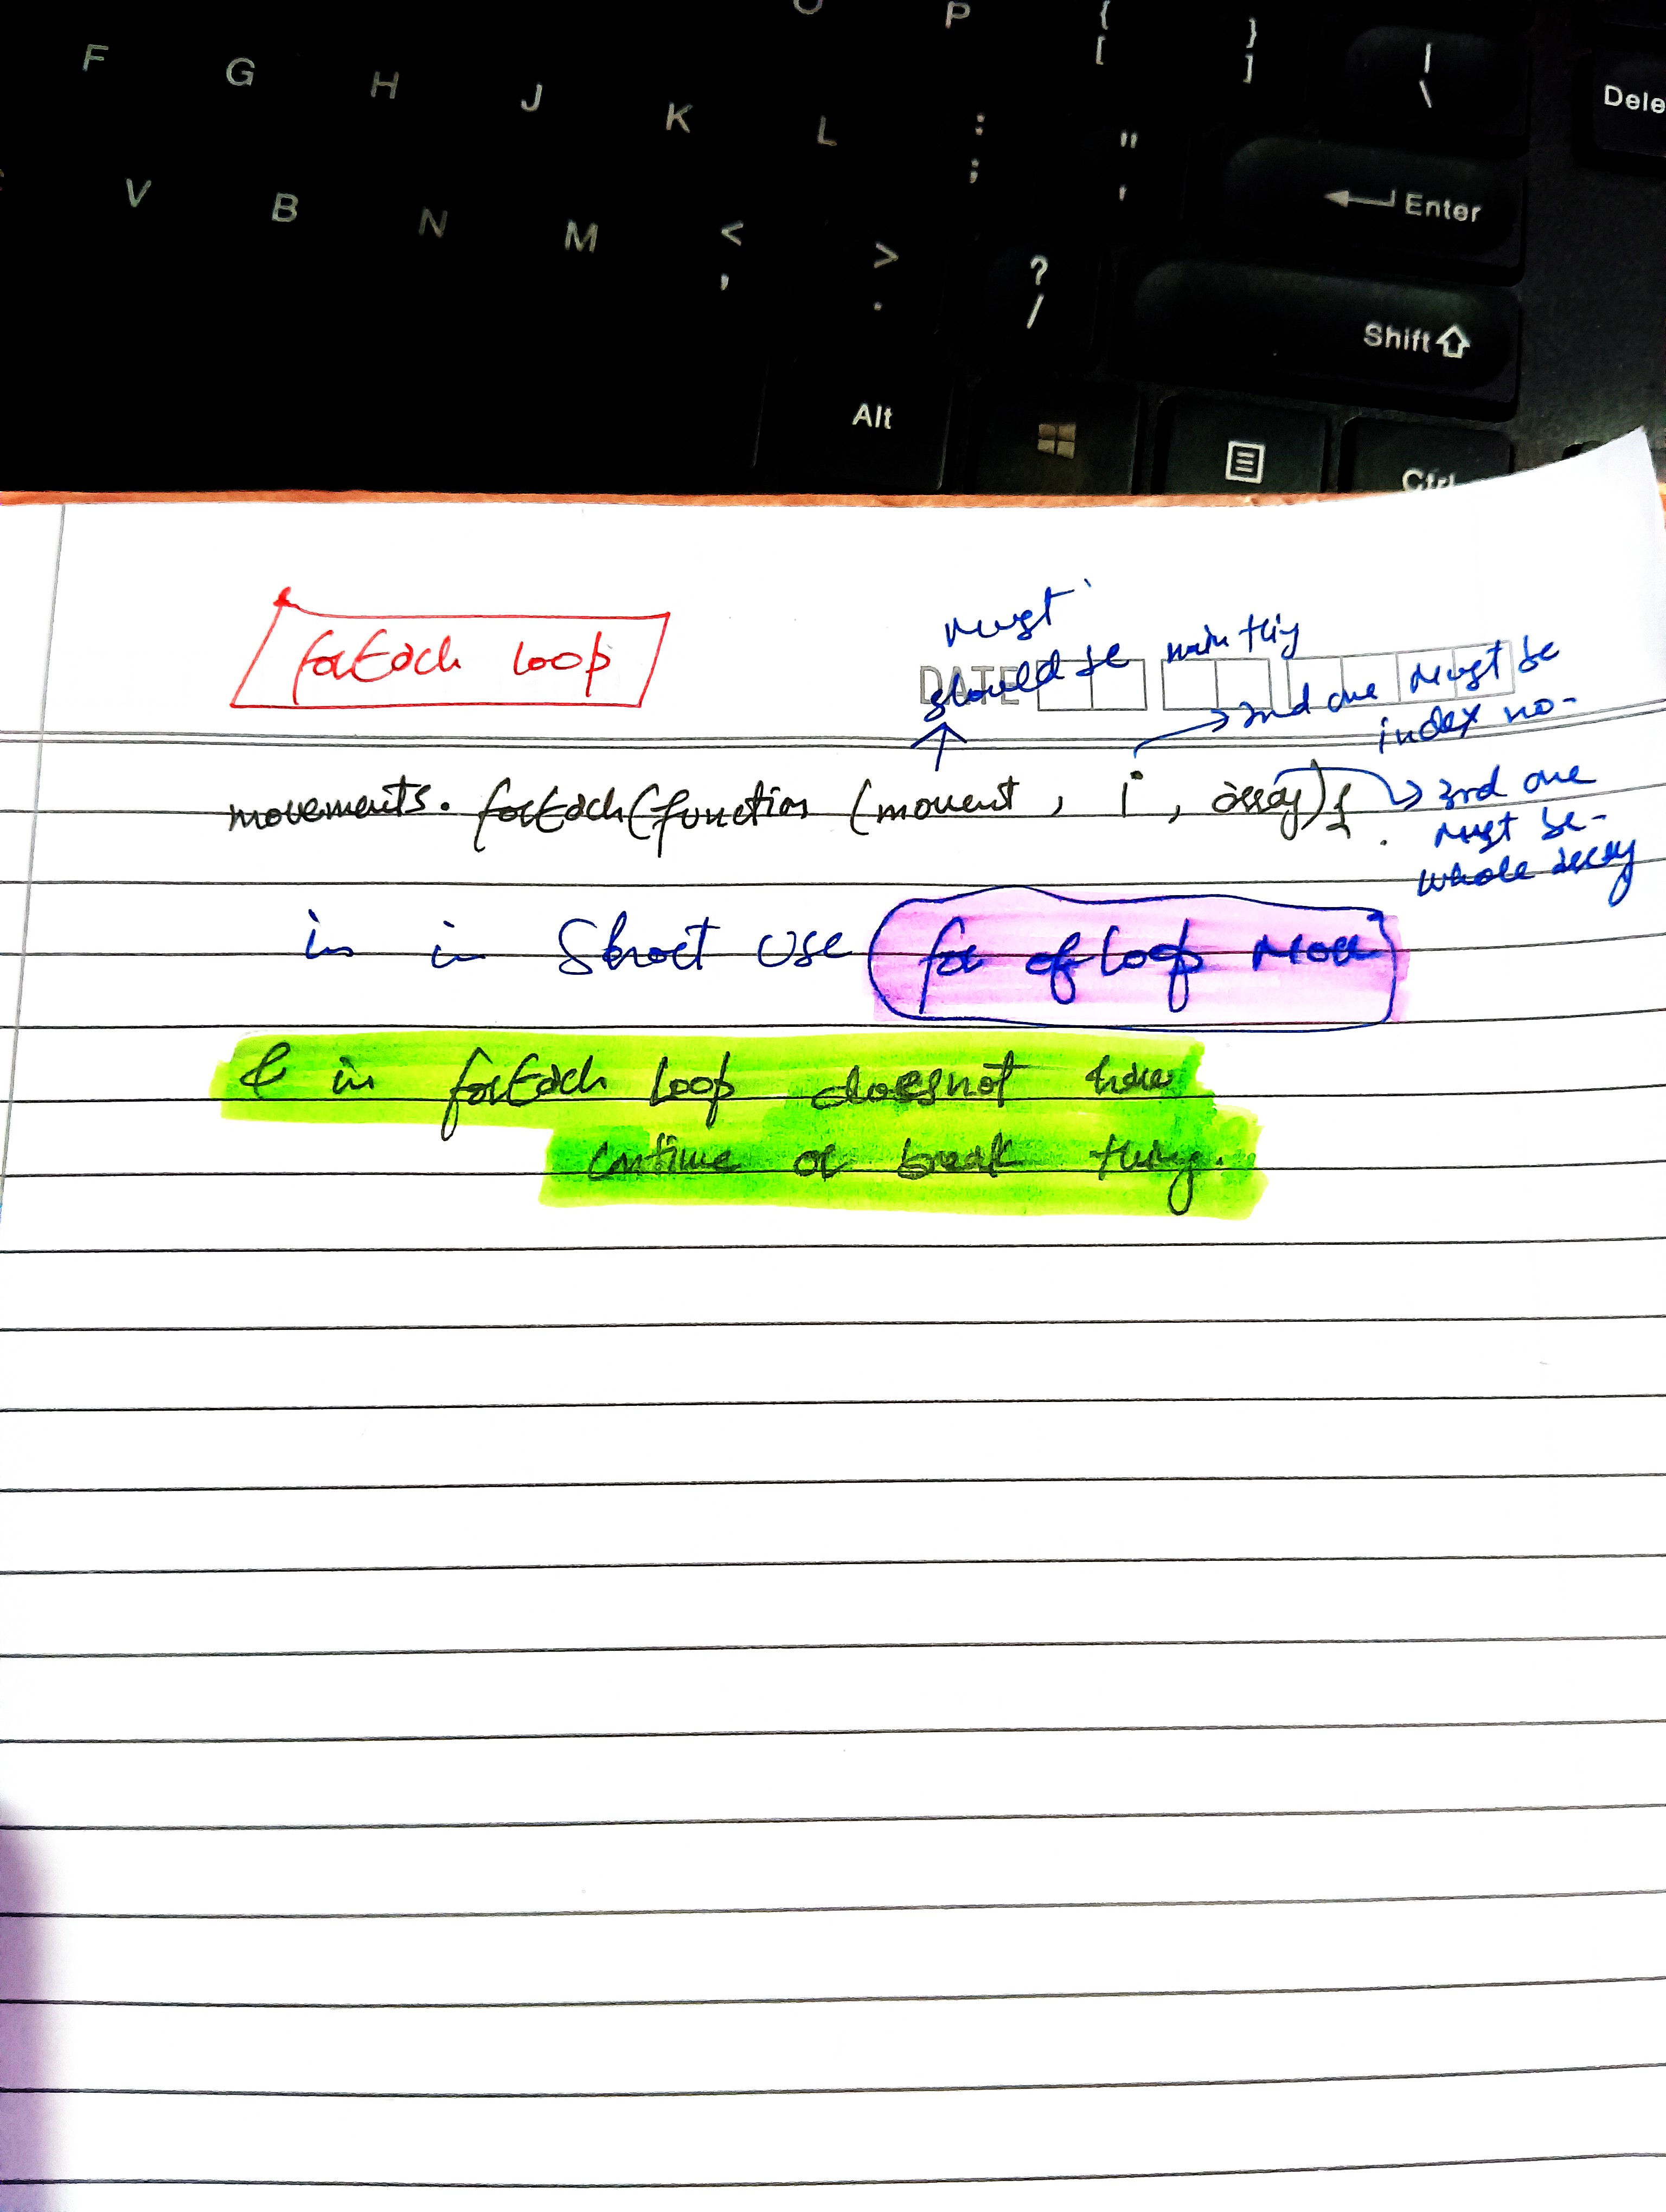 O P { [ } ] | \
F G H J K L : ; " ' Dele
V B N M < , > . ? / Enter
Shift
Alt Ctrl
forEach loop
must
should be main thig
DATE
2nd one must be
index no-
movements. forEach(function (movent , i , array) {
3rd one
must be-
whole array
in in Short use for of loop more
& in forEach loop doesnot have
continue or break thing.